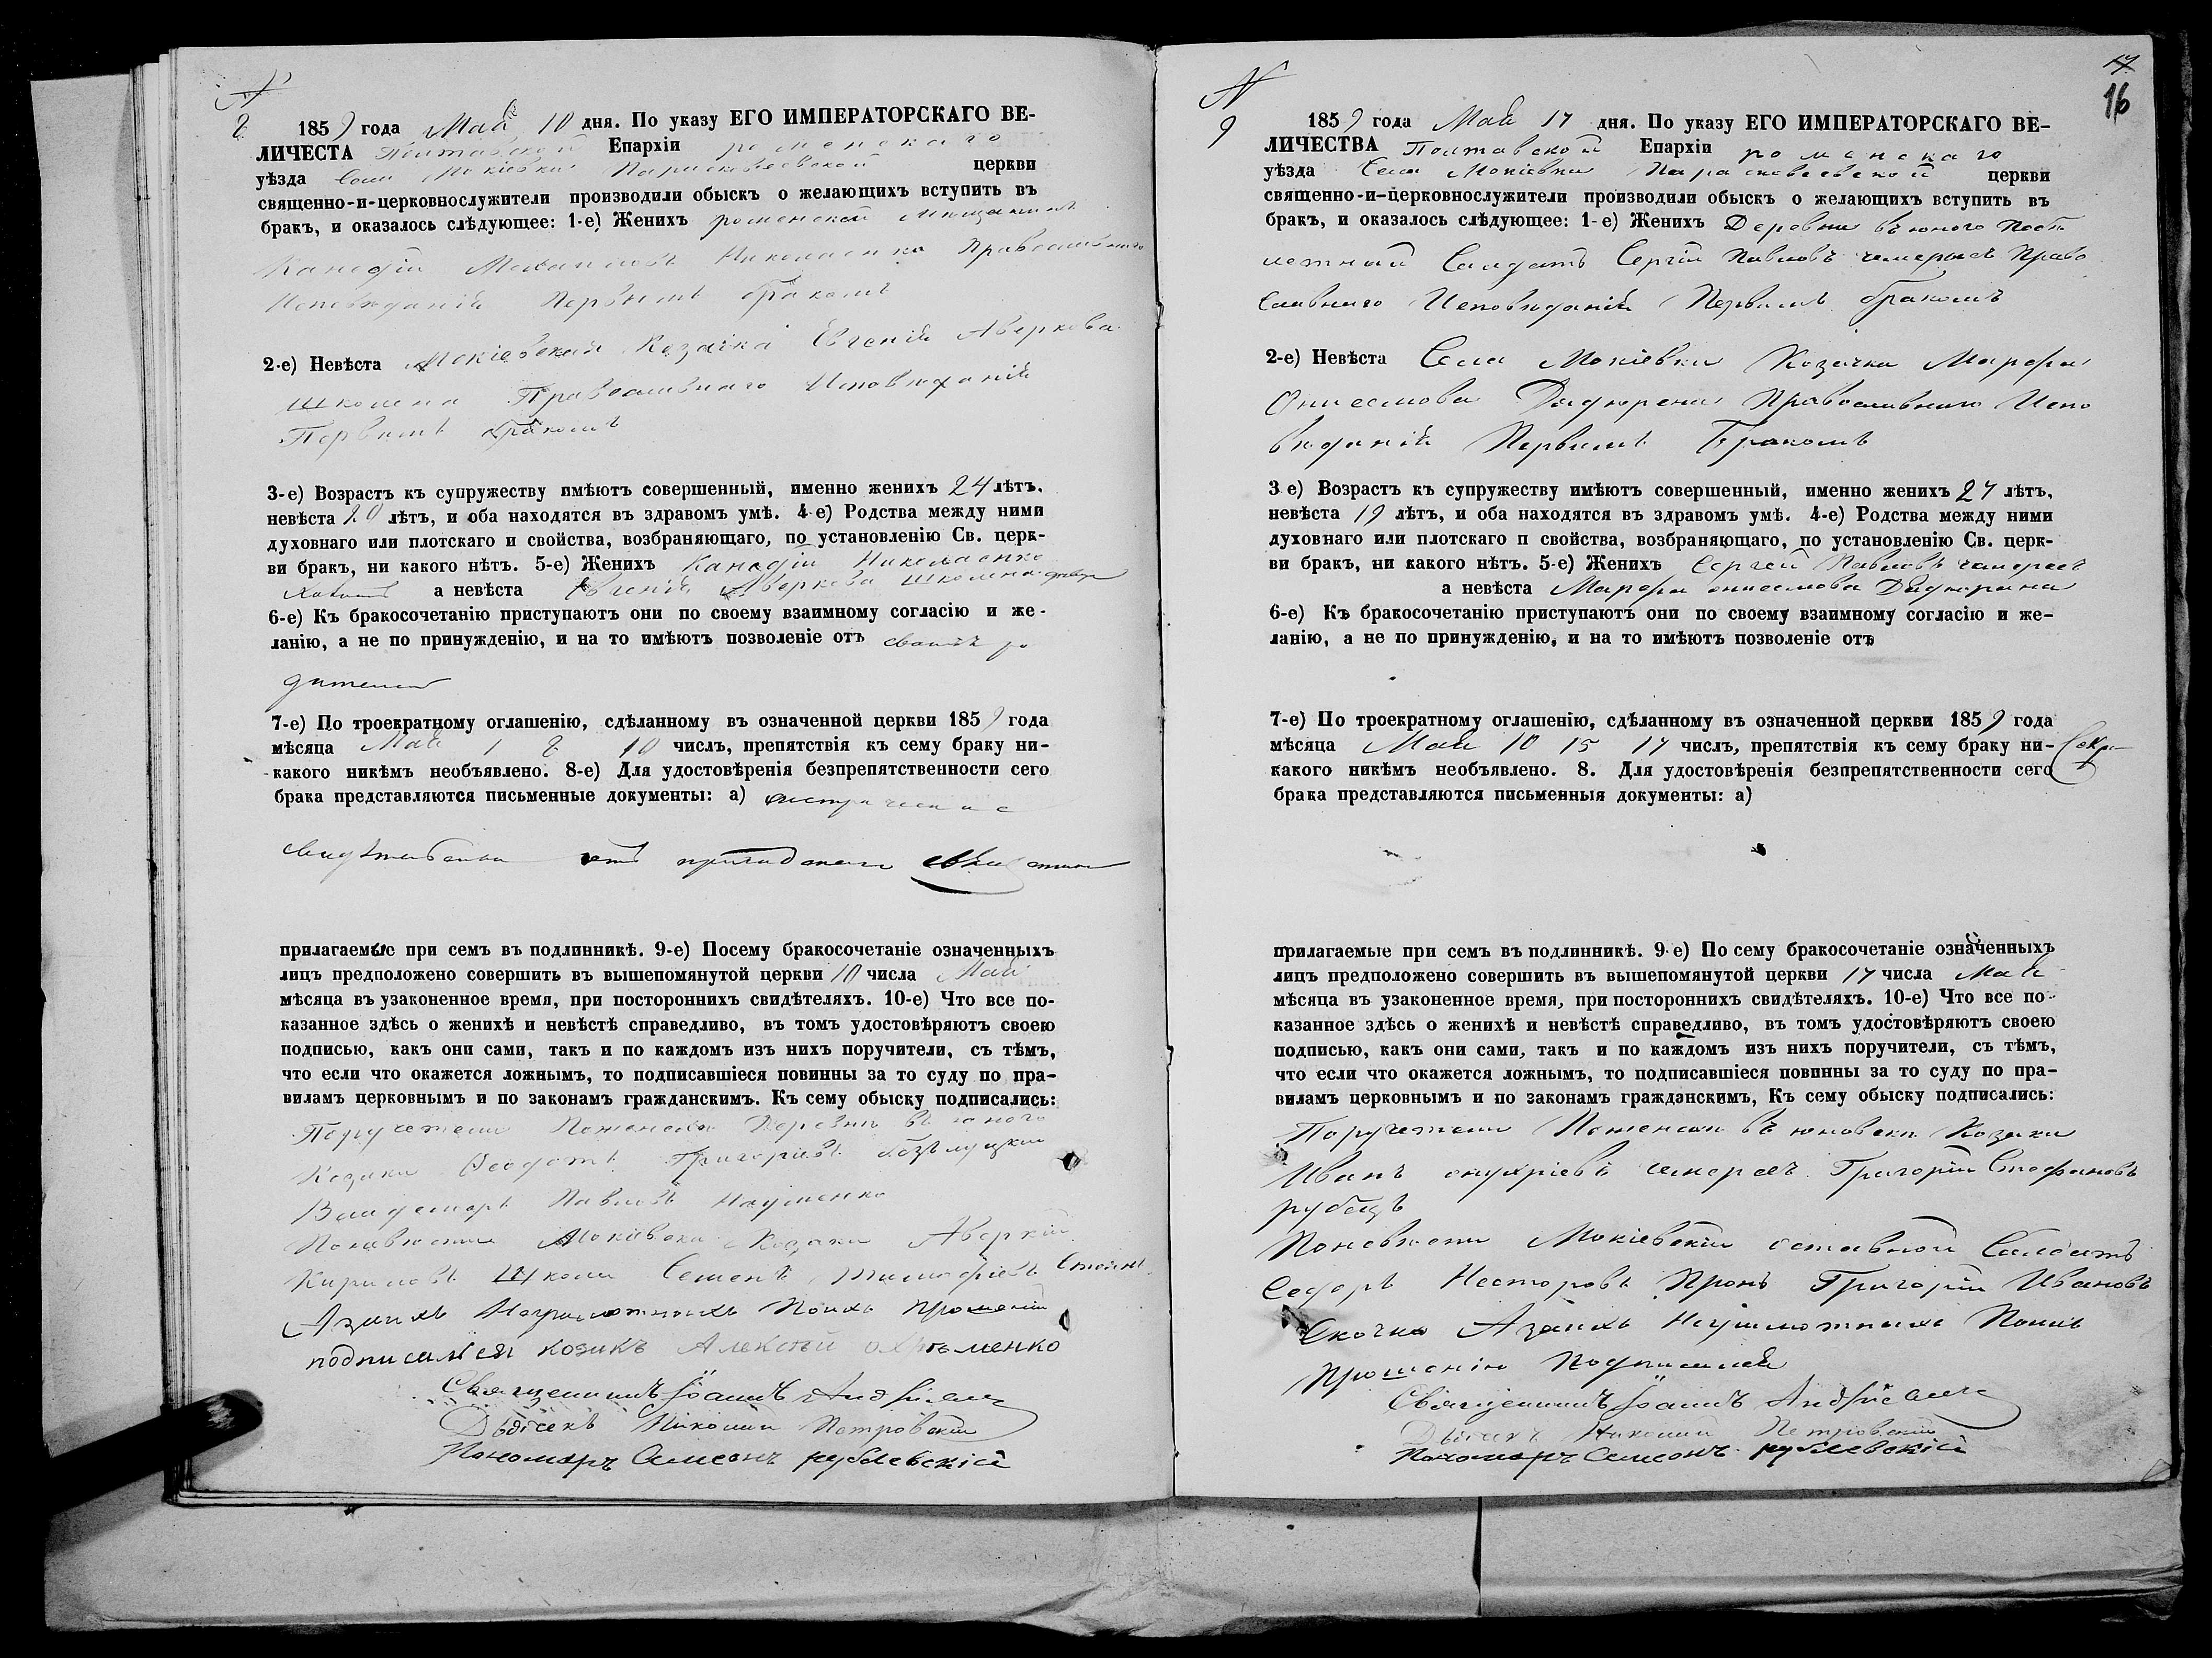 №
8
1859 года Май 10 дня. По указу ЕГО ИМПЕРАТОРСКАГО ВЕ-
ЛИЧЕСТА Полтавской Епархіи роменскаго
уѣзда Села Мокіевки Параскевіевской церкви
священно-и-церковнослужители производили обыскъ о желающихъ вступить въ
бракъ, и оказалось слѣдующее: 1-е) Женихъ роменской мещанинъ
Николаенко Православнаго
Исповѣданія Первымъ бракомъ
2-е) Невѣста Мокіевская Козачка Евгенія Аверкова
Школена Православнаго Исповѣданія
Первымъ бракомъ
3-е) Возрастъ къ супружеству имѣютъ совершенный, именно женихъ 24 лѣтъ,
невѣста 20 лѣтъ, и оба находятся въ здравомъ умѣ. 4-е) Родства между ними
духовнаго или плотскаго и свойства, возбраняющаго, по установленію Св. церк-
ви бракъ, ни какого нѣтъ. 5-е) Женихъ Николаенко
а невѣста Евгенія Аверкова Школена
6-е) Къ бракосочетанію приступаютъ они по своему взаимному согласію и же-
ланію, а не по принужденію, и на то имѣютъ позволеніе отъ своихъ ро
дителей
7-е) По троекратному оглашенію, сдѣланному въ означенной церкви 1859 года
мѣсяца Май 1 8 10 числъ, препятствія къ сему браку ни-
какого никѣмъ необъявлено. 8-е) Для удостовѣренія безпрепятственности сего
брака представляются письменные документы: а) метрическіе
свидѣтельства отъ
прилагаемые при семъ въ подлинникѣ. 9-е) Посему бракосочетаніе означенныхъ
лицъ предположено совершить въ вышепомянутой церкви 10 числа Май
мѣсяца въ узаконенное время, при постороннихъ свидѣтеляхъ. 10-е) Что все по-
казанное здѣсь о женихѣ и невѣстѣ справедливо, въ томъ удостовѣряютъ своею
подписью, какъ они сами, такъ и по каждомъ изъ нихъ поручители, съ тѣмъ,
что если что окажется ложнымъ, то подписавшіеся повинны за то суду по пра-
виламъ церковнымъ и по законамъ гражданскимъ. Къ сему обыску подписались:
Поручители Поженихи Деревни въюного
Козаки Феодотъ Григоріевъ
Павловъ Науменко
Поневѣсти Мокіевски Козаки Аверкій
Кириловъ Школа Семенъ Тимофіевъ
Азаихъ Неграмотныхъ Поихъ прошенію
подписался козакъ Алексѣй охрѣменко
Священникъ Іоаннъ
Дьячекъ Никоній Петровскій
Пономарь Самсонъ рублевскій
№
9
17
16
1859 года Май 17 дня. По указу ЕГО ИМПЕРАТОРСКАГО ВЕ-
ЛИЧЕСТВА Полтавской Епархіи роменскаго
уѣзда Села Мокіевки Параскевіевской церкви
священно-и-церковнослужители производили обыскъ о желающихъ вступить въ
бракъ, и оказалось слѣдующее: 1-е) Женихъ Деревни въюного
Салдатъ Сергій Павловъ Право
славнаго Исповѣданія Первымъ бракомъ
2-е) Невѣста Села Мокіевки Козачка Марфа
Онисимова Православнаго Испо
вѣданія Первымъ Бракомъ
3 е) Возрастъ къ супружеству имѣютъ совершенный, именно женихъ 27 лѣтъ,
невѣста 19 лѣтъ, и оба находятся въ здравомъ умѣ. 4-е) Родства между ними
духовнаго или плотскаго п свойства, возбраняющаго, по установленію Св. церк-
ви бракъ, ни какого нѣтъ. 5-е) Женихъ Сергей Павловъ
а невѣста Марфа онисимова
6-е) Къ бракосочетанію приступаютъ они по своему взаимному согласію и же-
ланію, а не по принужденію, и на то имѣютъ позволеніе отъ
7-е) По троекратному оглашенію, сдѣланному въ означенной церкви 1859 года
мѣсяца Май 10 15 17 числъ, препятствія къ сему браку ни-
какого никѣмъ необъявлено. 8. Для удостовѣренія безпрепятственности сего
брака представляются письменныя документы: а)
прилагаемые при семъ въ подлинникѣ. 9-е) По сему бракосочетаніе означенныхъ
лицъ предположено совершить въ вышепомянутой церкви 17 числа Май
мѣсяца въ узаконенное время, при постороннихъ свидѣтеляхъ. 10-е) Что все по-
казанное здѣсь о женихѣ и невѣстѣ справедливо, въ томъ удостовѣряютъ своею
подписью, какъ они сами, такъ и по каждомъ изъ нихъ поручители, съ тѣмъ,
что если что окажется ложнымъ, то подписавшіеся повинны за то суду по пра-
виламъ церковнымъ и по законамъ гражданскимъ, Къ сему обыску подписались:
Поручители Козаки
Иванъ онуфріевъ Григорій Стефановъ
рубецъ
Поневѣсти Мокіевскіи Салдатъ
Федоръ Несторовъ Пронь Григорій Ивановъ
Скочко Азаихъ Неграмотныхъ Поихъ
Прошенію Подписался
Священникъ Іоаннъ
Дьячекъ Никоній Петровскій
Пономарь Самсонъ рублевскій